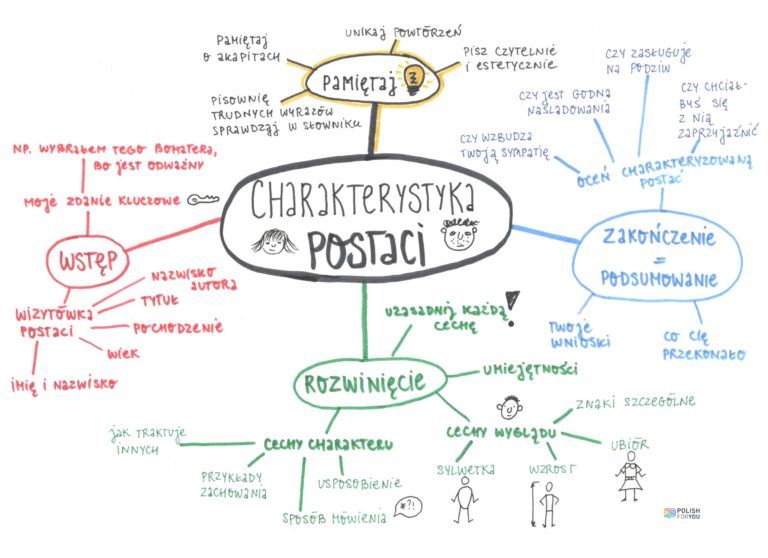 PAMIĘTAJ
O AKAPITACH
UNIKAJ POWTÓRZEŃ
PISZ CZYTELNIE
I ESTETYCZNIE
PAMIĘTAJ
PISOWNIĘ
TRUDNYCH WYRAZÓW
SPRAWDZAJ W SŁOWNIKU
CZY ZASŁUGUJE
NA PODZIW
CZY JEST GODNA
NAŚLADOWANIA
CZY CHCIAŁ-
BYŚ SIĘ
Z NIĄ
ZAPRZYJAŹNIĆ
CZY WZBUDZA
TWOJĄ SYMPATIĘ
OCEŃ CHARAKTERYZOWANĄ
POSTAĆ
NP. WYBRAŁEM TEGO BOHATERA,
BO JEST ODWAŻNY
MOJE ZDANIE KLUCZOWE
CHARAKTERYSTYKA
POSTACI
WSTĘP
ZAKOŃCZENIE
=
PODSUMOWANIE
NAZWISKO
AUTORA
TYTUŁ
WIZYTÓWKA
POSTACI
POCHODZENIE
WIEK
IMIĘ I NAZWISKO
TWOJE
WNIOSKI
CO CIĘ
PRZEKONAŁO
UZASADNIJ KAŻDĄ
CECHĘ !
ROZWINIĘCIE
UMIEJĘTNOŚCI
JAK TRAKTUJE
INNYCH
CECHY CHARAKTERU
PRZYKŁADY
ZACHOWANIA
USPOSOBIENIE
SPOSÓB MÓWIENIA
#?!
CECHY WYGLĄDU
ZNAKI SZCZEGÓLNE
SYLWETKA
WZROST
UBIÓR
POLISH
FOR YOU